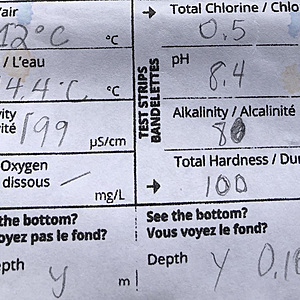 /air
12°C °C
/ L'eau
4.4°C °C
vity
vité 199 µS/cm
Oxygen
dissous — mg/L
the bottom?
oyez pas le fond?
epth y m
TEST STRIPS
BANDELETTES
Total Chlorine / Chlo
0.5
pH
8.4
Alkalinity / Alcalinité
80
Total Hardness / Dur
100
See the bottom?
Vous voyez le fond?
Depth y 0.1